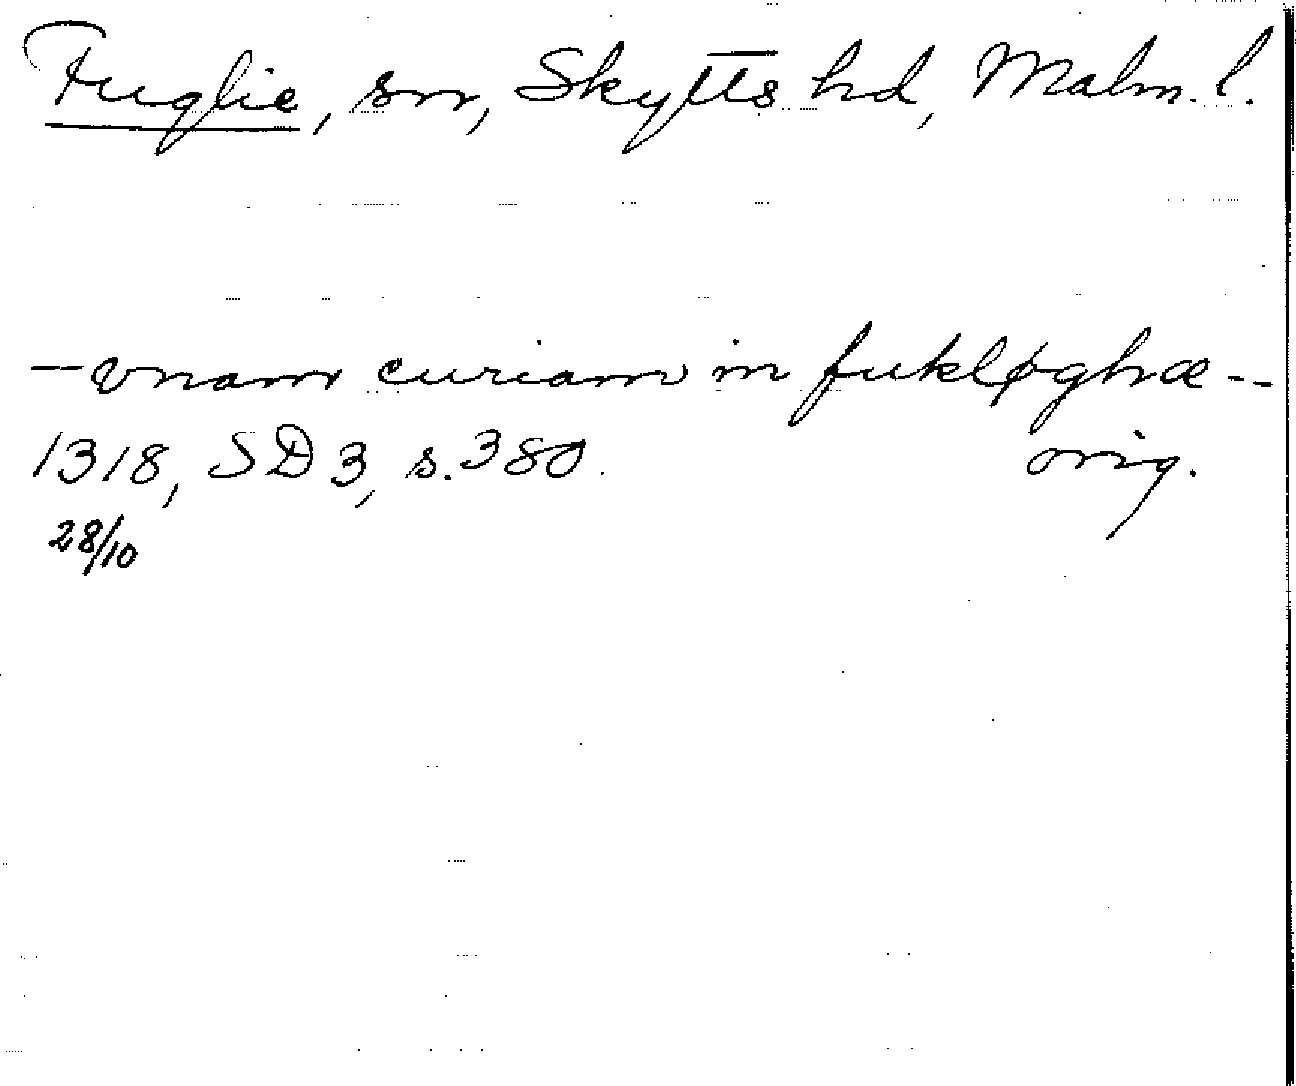 Fuglie, sn, Skytts hd, Malm. l.
— vnam curiam in fukløghæ --
1318, SD 3, s. 380. orig.
28/10